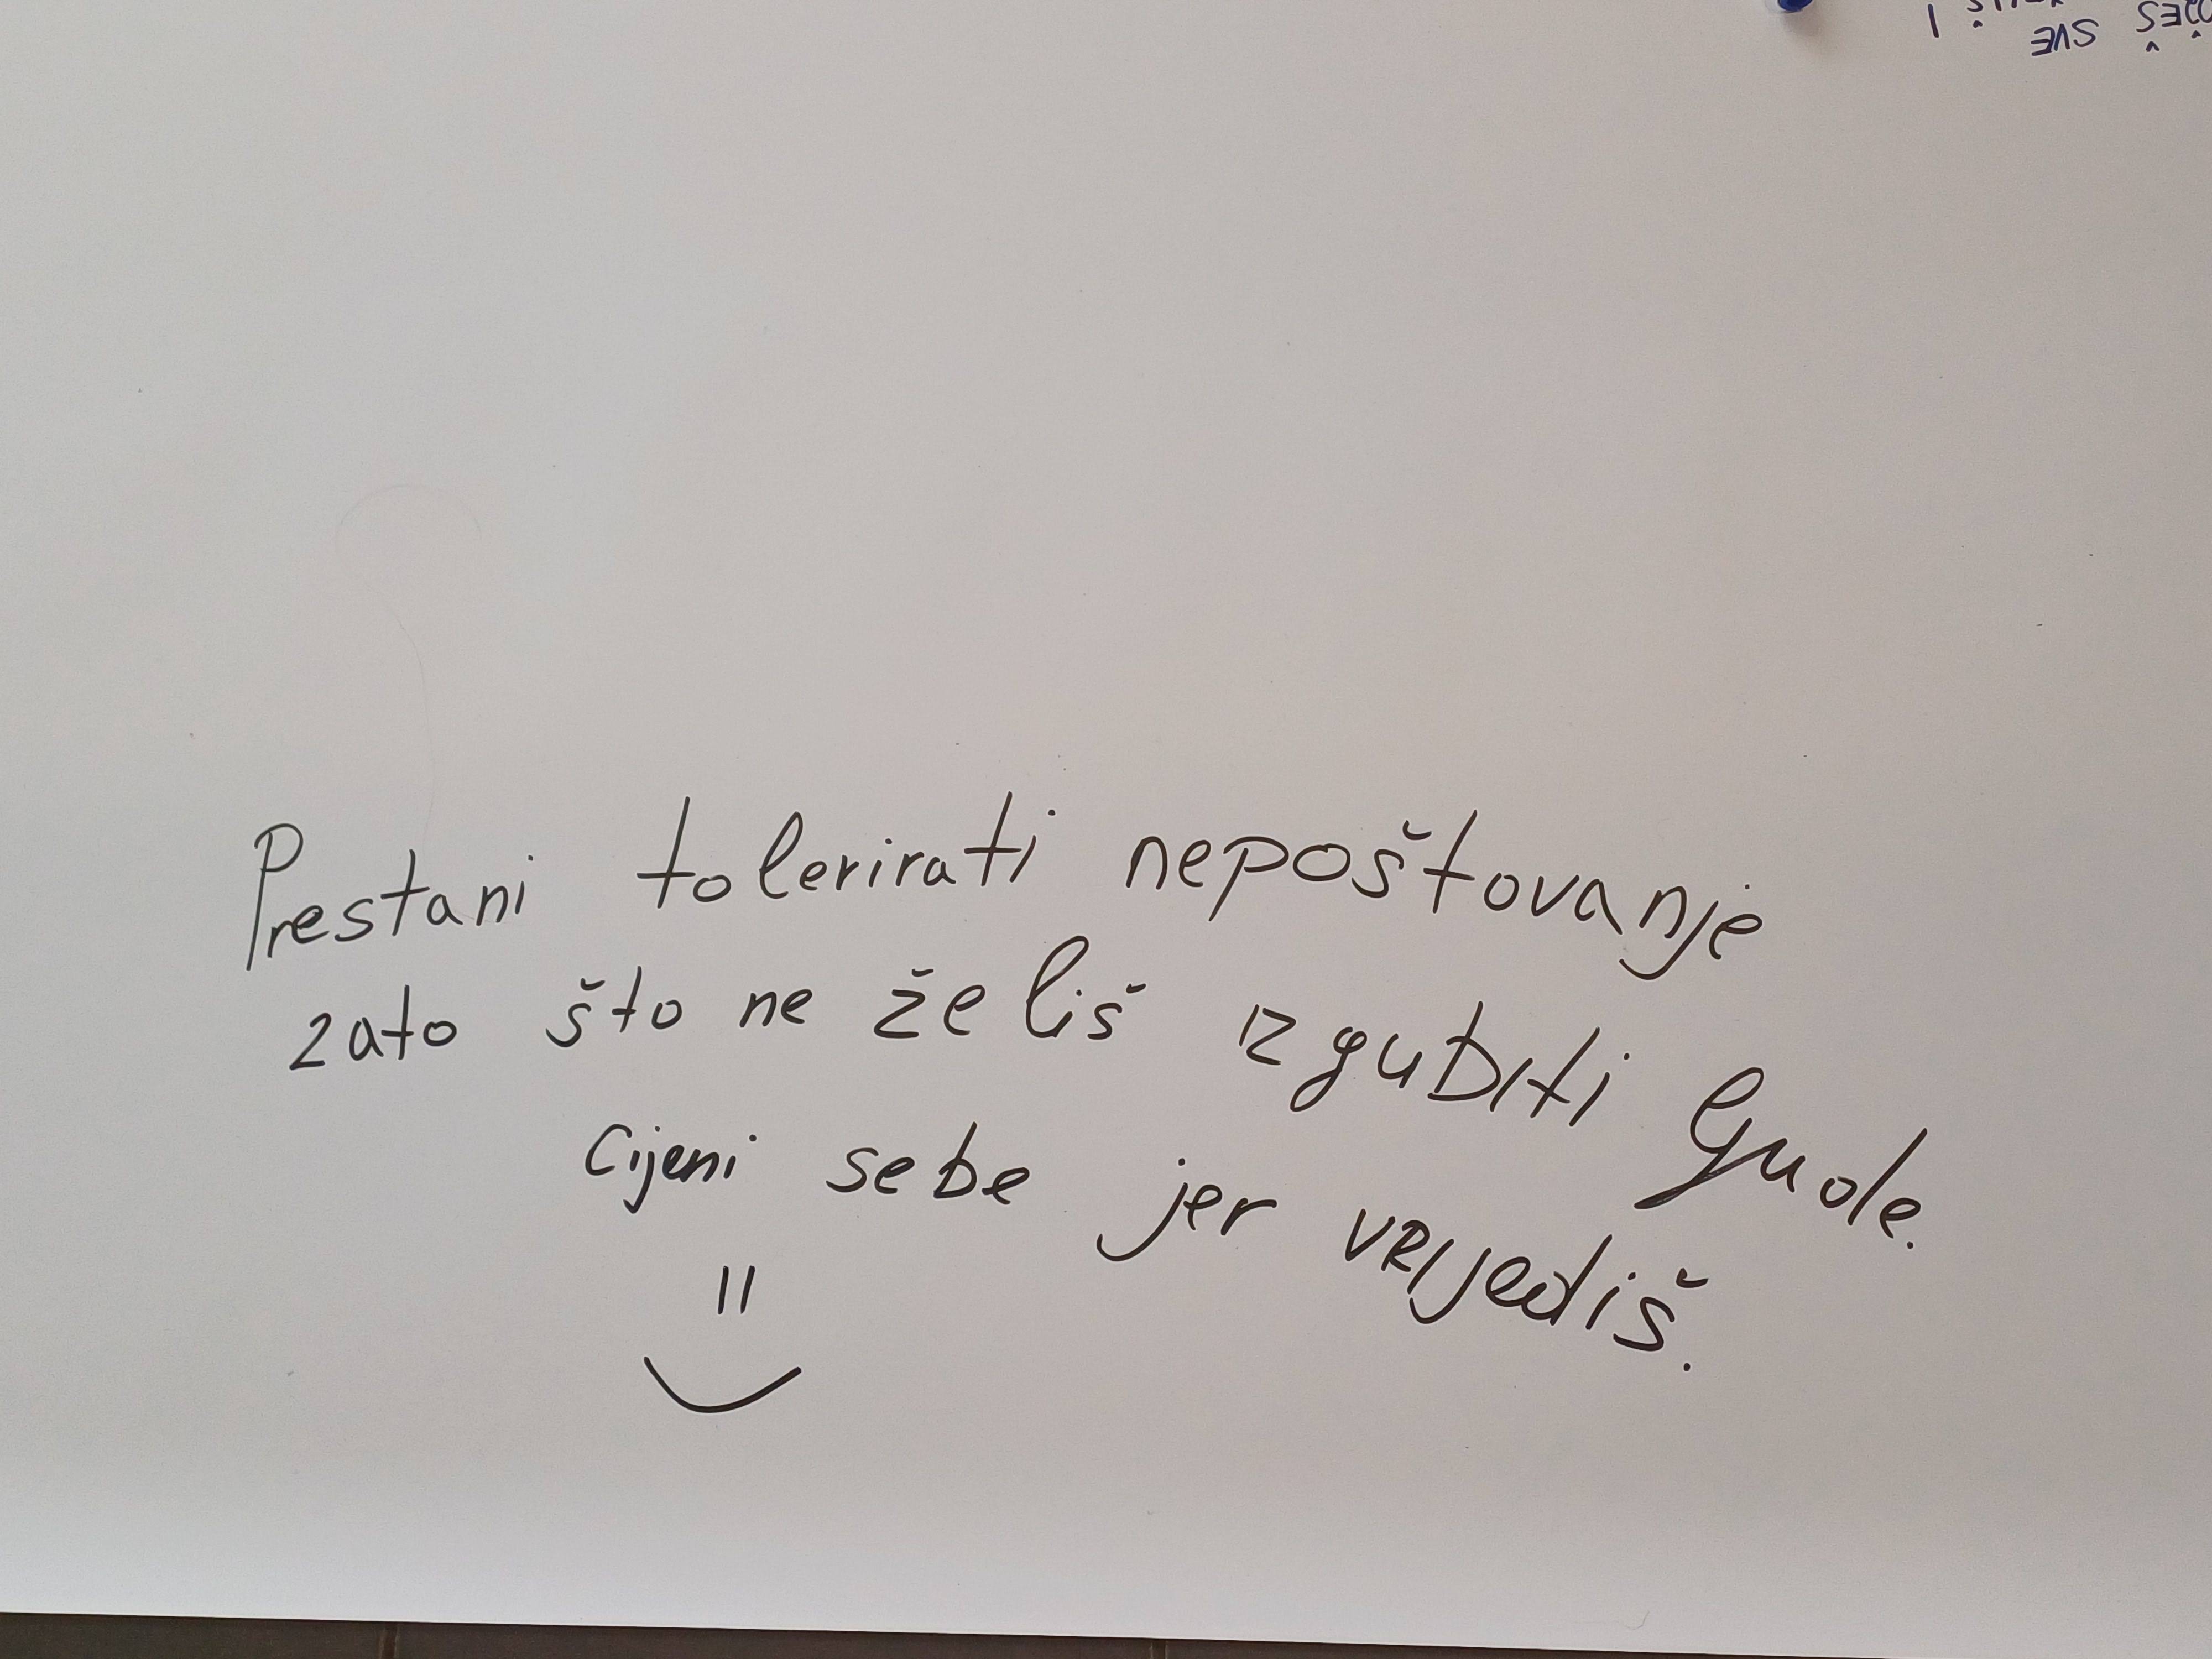 SVE
Prestani tolerirati nepoštovanje
zato što ne želiš izgubiti ljude.
Cijeni sebe jer vrijediš.